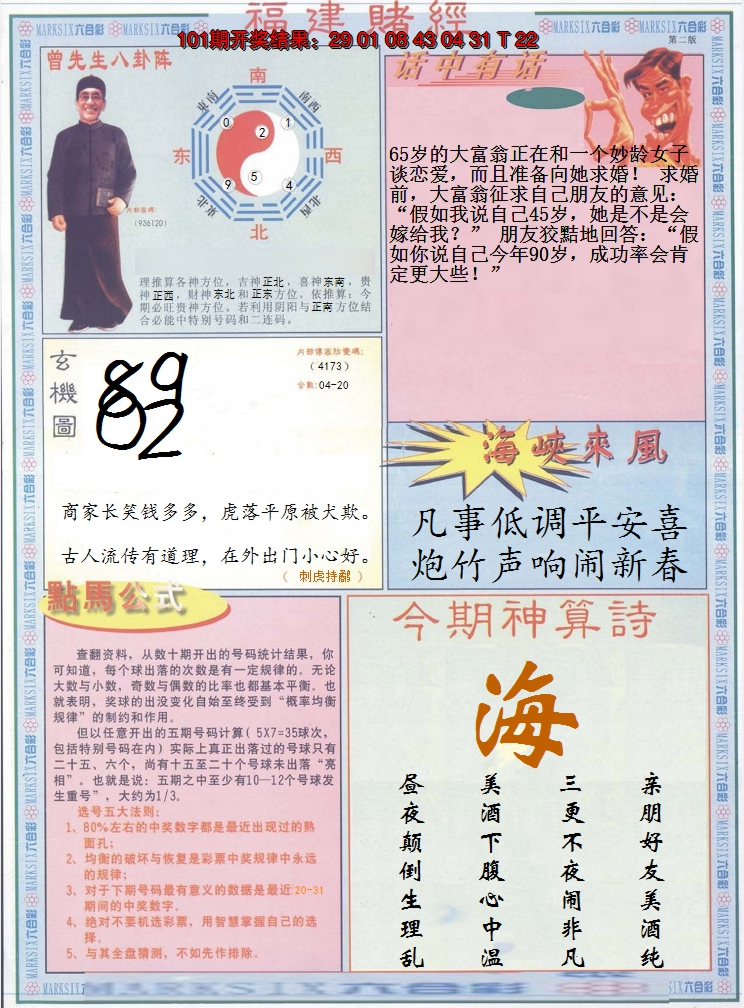 福建賭經
101期开奖结果：29 01 08 43 04 31 T 22
MARKSIX六合彩
第二版
曾先生八卦阵
南
东南
南西
0
2
1
东
西
9
5
4
東北
北西
北
内部密碼:
(936120)
理推算各神方位，吉神正北，喜神东南，贵
神正西，财神东北和正东方位。依推算：今
期必旺贵神方位。若利用阴阳与正南方位结
合必能中特别号码和二连码。
话中有话
65岁的大富翁正在和一个妙龄女子
谈恋爱，而且准备向她求婚！ 求婚
前，大富翁征求自己朋友的意见：
“假如我说自己45岁，她是不是会
嫁给我？” 朋友狡黠地回答：“假
如你说自己今年90岁，成功率会肯
定更大些！”
玄機圖
8902
(4173)
合数:04-20
商家长笑钱多多，虎落平原被犬欺。
古人流传有道理，在外出门小心好。
（ 刺虎持鹬 ）
海峽來風
凡事低调平安喜
炮竹声响闹新春
點馬公式
查翻资料，从数十期开出的号码统计结果，你
可知道，每个球出落的次数是有一定规律的。无论
大数与小数，奇数与偶数的比率也都基本平衡。也
就表明，奖球的出没变化自始至终受到“概率均衡
规律”的制约和作用。
但以任意开出的五期号码计算( 5X7=35球次，
包括特别号码在内) 实际上真正出落过的号球只有
二十五、六个，尚有十五至二十个号球未出落“亮
相”。也就是说：五期之中至少有10—12个号球发
生重号”，大约为1/3。
选号五大法则：
1、80%左右的中奖数字都是最近出现过的熟
面孔；
2、均衡的破坏与恢复是彩票中奖规律中永远
的规律；
3、对于下期号码最有意义的数据是最近20-31
期间的中奖数字。
4、绝对不要机选彩票，用智慧掌握自己的选
择。
5、与其全盘猜测，不如先作排除。
今期神算詩
海
亲朋好友美酒纯
三更不夜闹非凡
美酒下腹心中温
昼夜颠倒生理乱